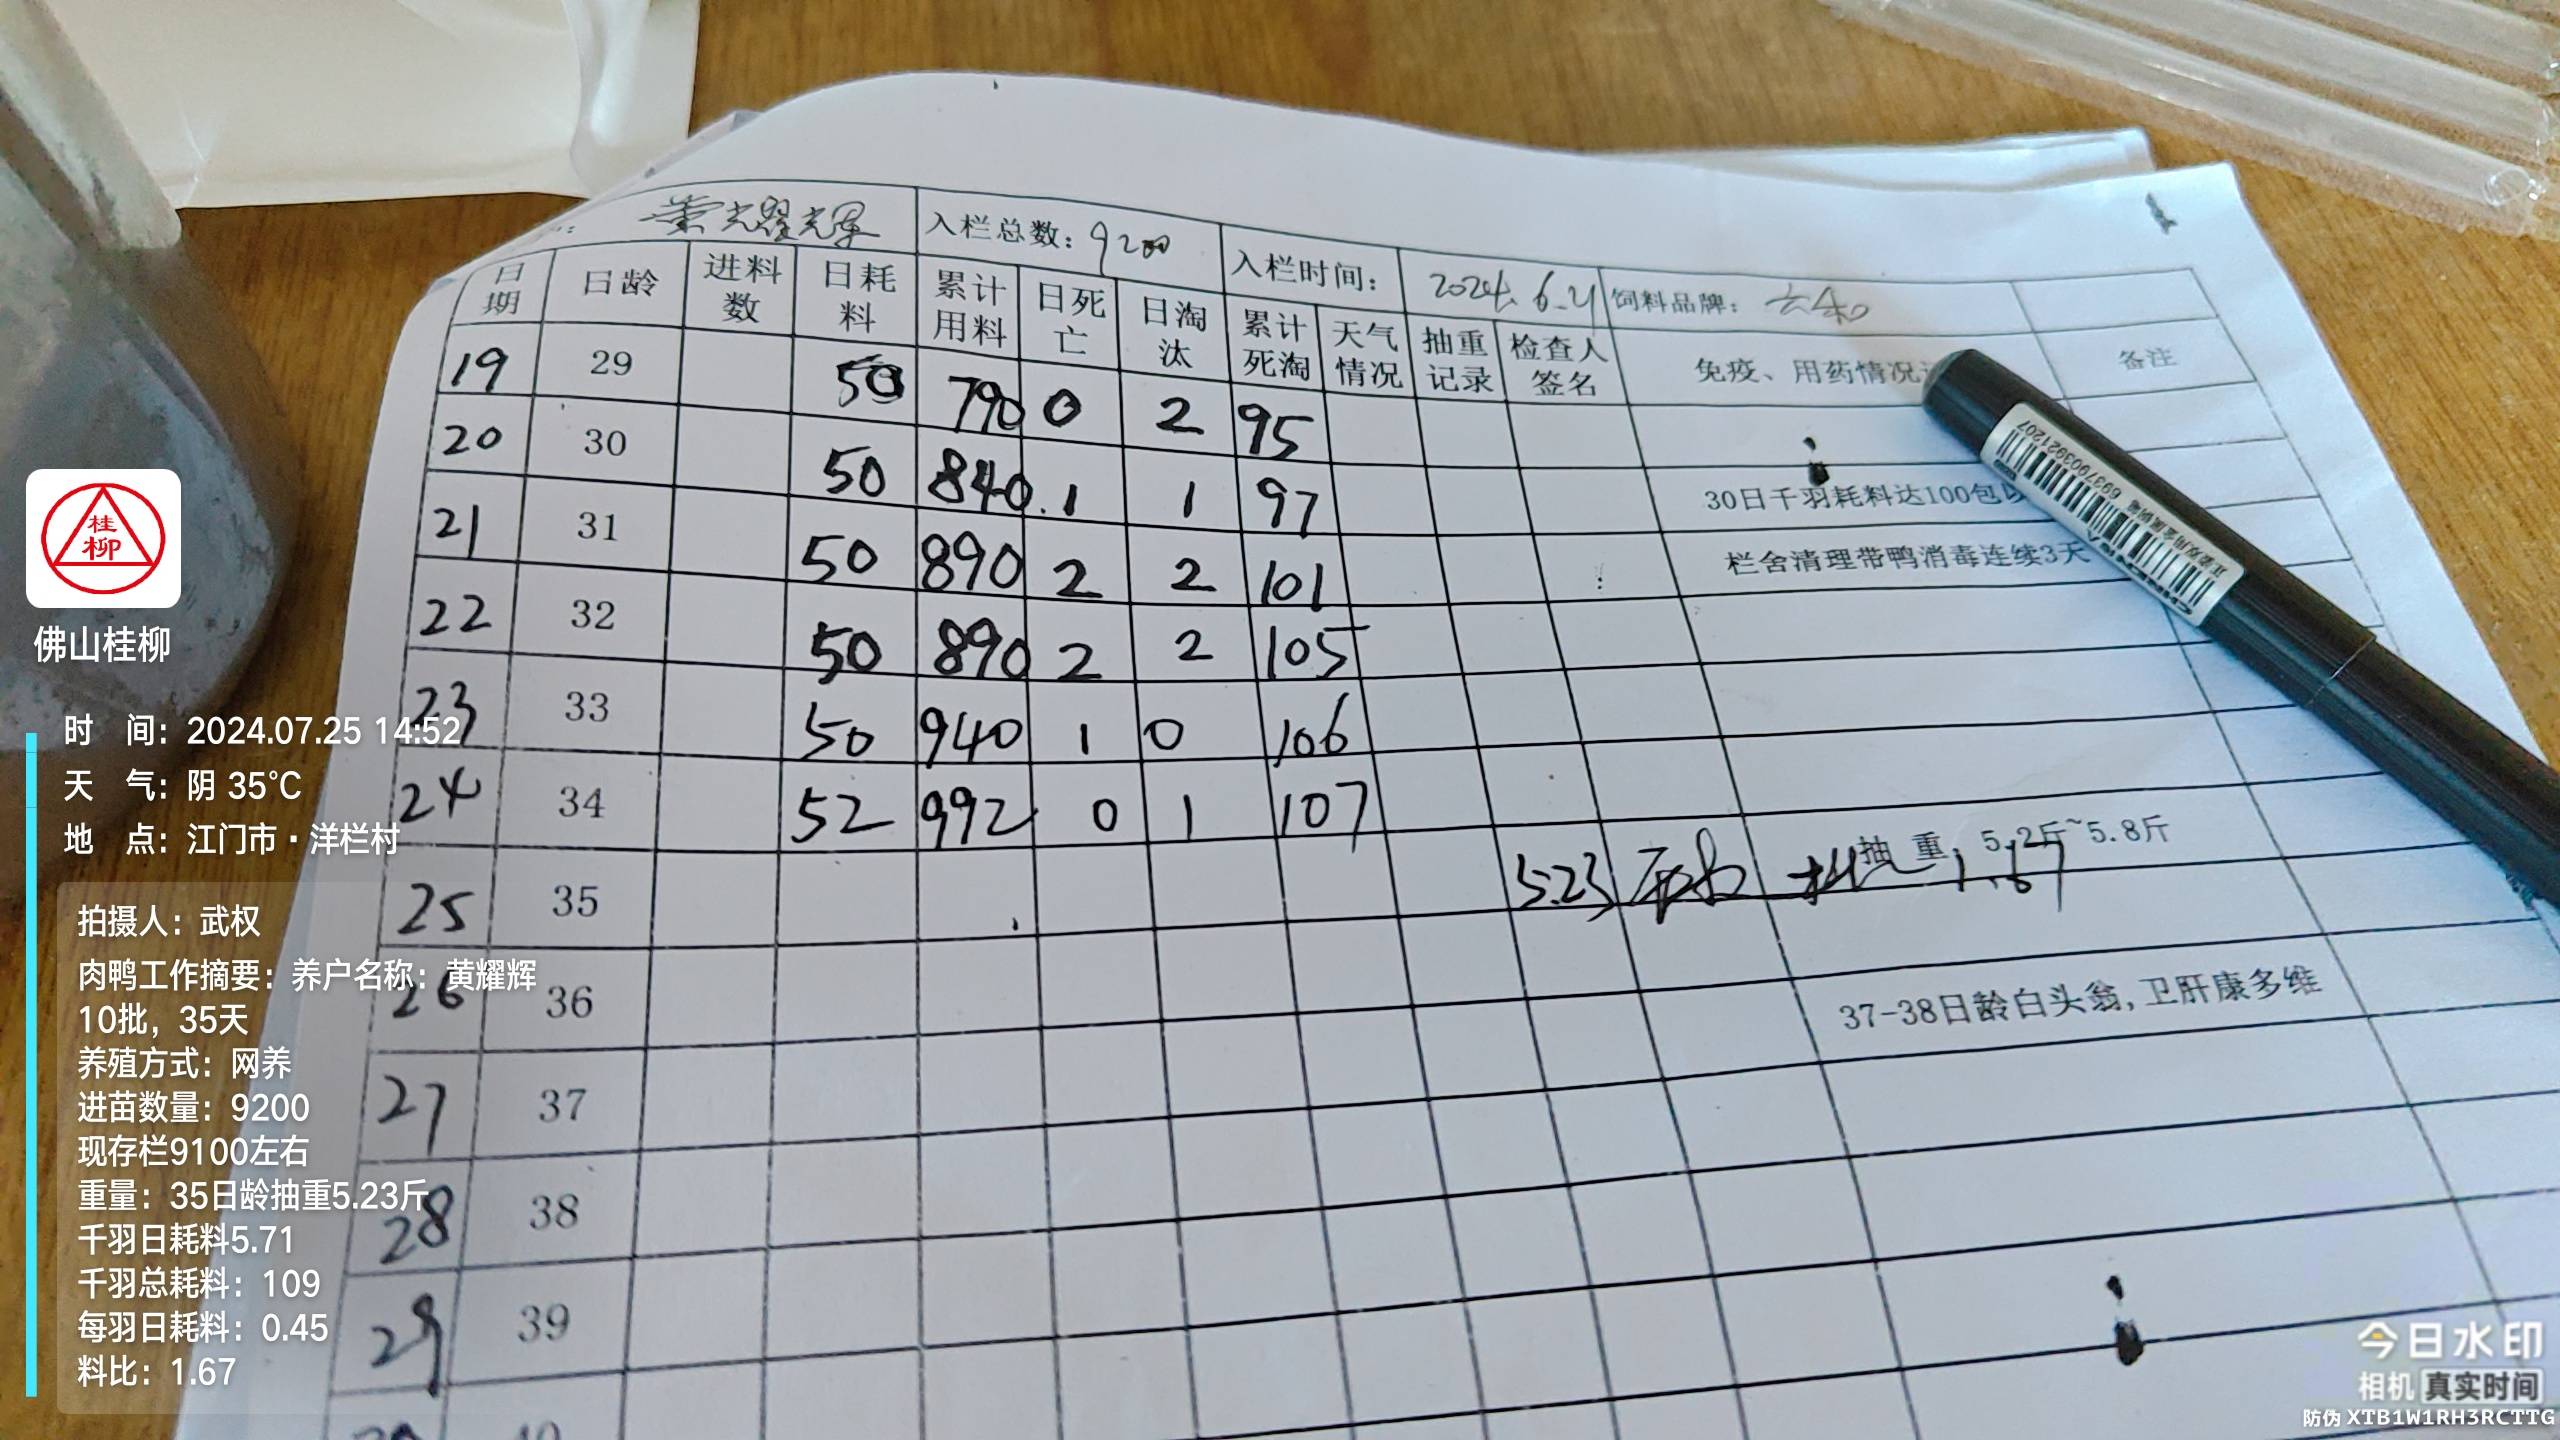 黄耀辉 入栏总数: 9200 入栏时间: 2024.6.21 饲料品牌:
日期 日龄 进料数 日耗料 累计用料 日死亡 日淘汰 累计死淘 天气情况 抽重记录 检查人签名 免疫、用药情况 备注
19 29 50 790 0 2 95
20 30 50 840 1 1 97 30日千羽耗料达100包
21 31 50 890 2 2 101 栏舍清理带鸭消毒连续3天
22 32 50 890 2 2 105
23 33 50 940 1 0 106
24 34 52 992 0 1 107
25 35 5.23 抽重 5.2斤~5.8斤 1.67
26 36
37-38日龄白头翁,卫肝康多维
27 37
28 38
29 39
40
6937790392 1207
桂柳
佛山桂柳
时 间：2024.07.25 14:52
天 气：阴 35℃
地 点：江门市·洋栏村
拍摄人：武权
肉鸭工作摘要：养户名称：黄耀辉
10批，35天
养殖方式：网养
进苗数量：9200
现存栏9100左右
重量：35日龄抽重5.23斤
千羽日耗料5.71
千羽总耗料：109
每羽日耗料：0.45
料比：1.67
今日水印
相机 真实时间
防伪 XTB1W1RH3RCTTG